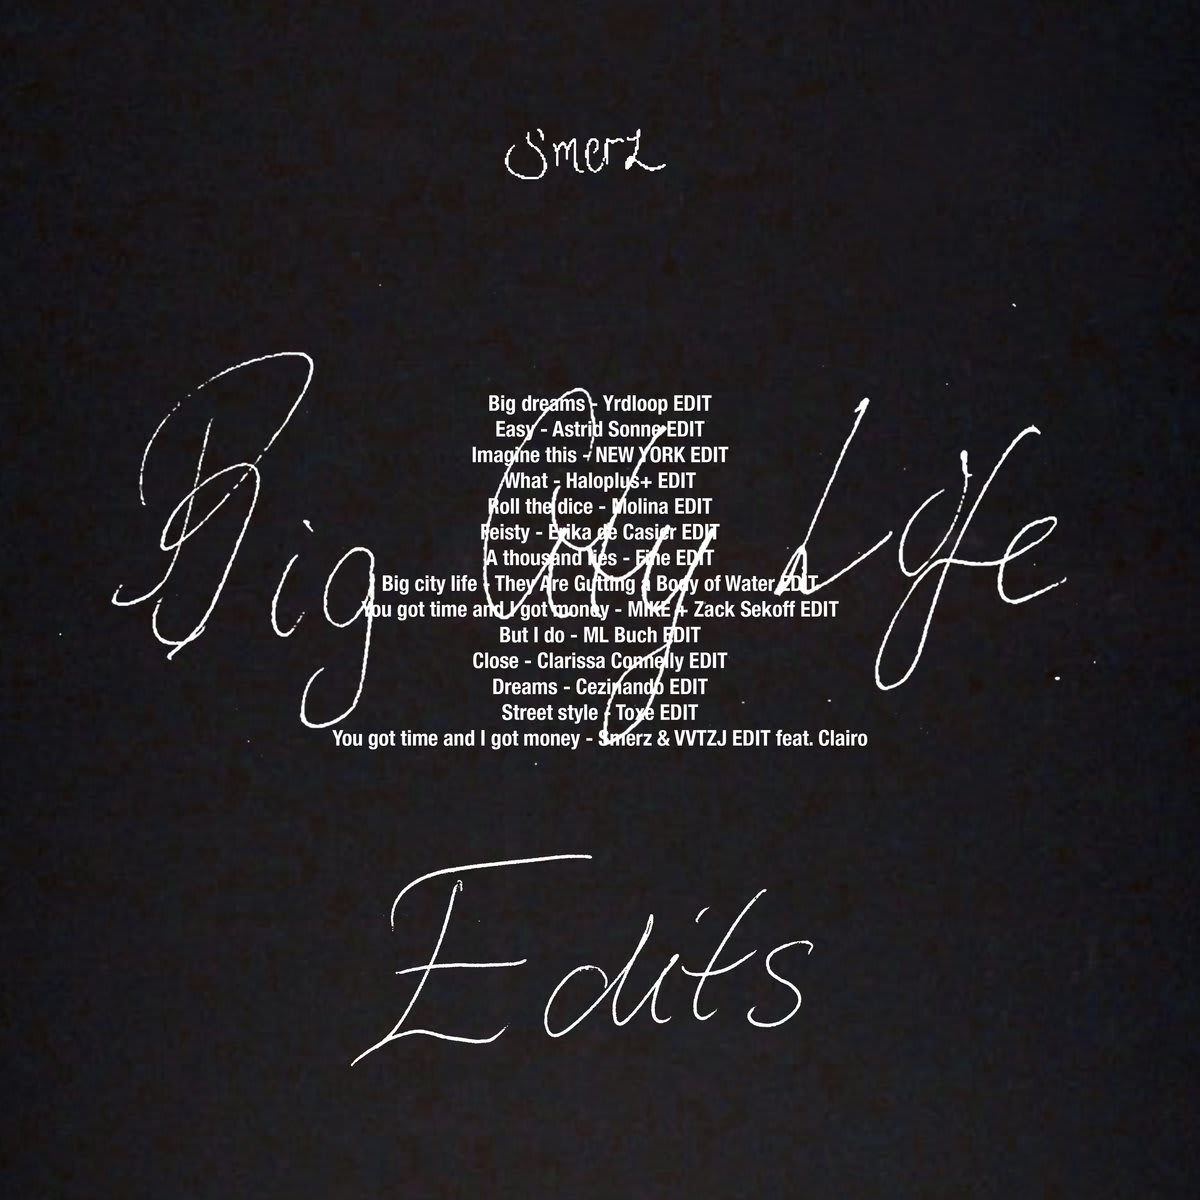 Smerz
Big City Life
Big dreams - Yrdloop EDIT
Easy - Astrid Sonne EDIT
Imagine this - NEW YORK EDIT
What - Haloplus+ EDIT
Roll the dice - Molina EDIT
Feisty - Erika de Casier EDIT
A thousand lies - Fine EDIT
Big city life - They Are Gutting a Body of Water EDIT
You got time and I got money - MIKE + Zack Sekoff EDIT
But I do - ML Buch EDIT
Close - Clarissa Connelly EDIT
Dreams - Cezinando EDIT
Street style - Toxe EDIT
You got time and I got money - Smerz & VVTZJ EDIT feat. Clairo
Edits